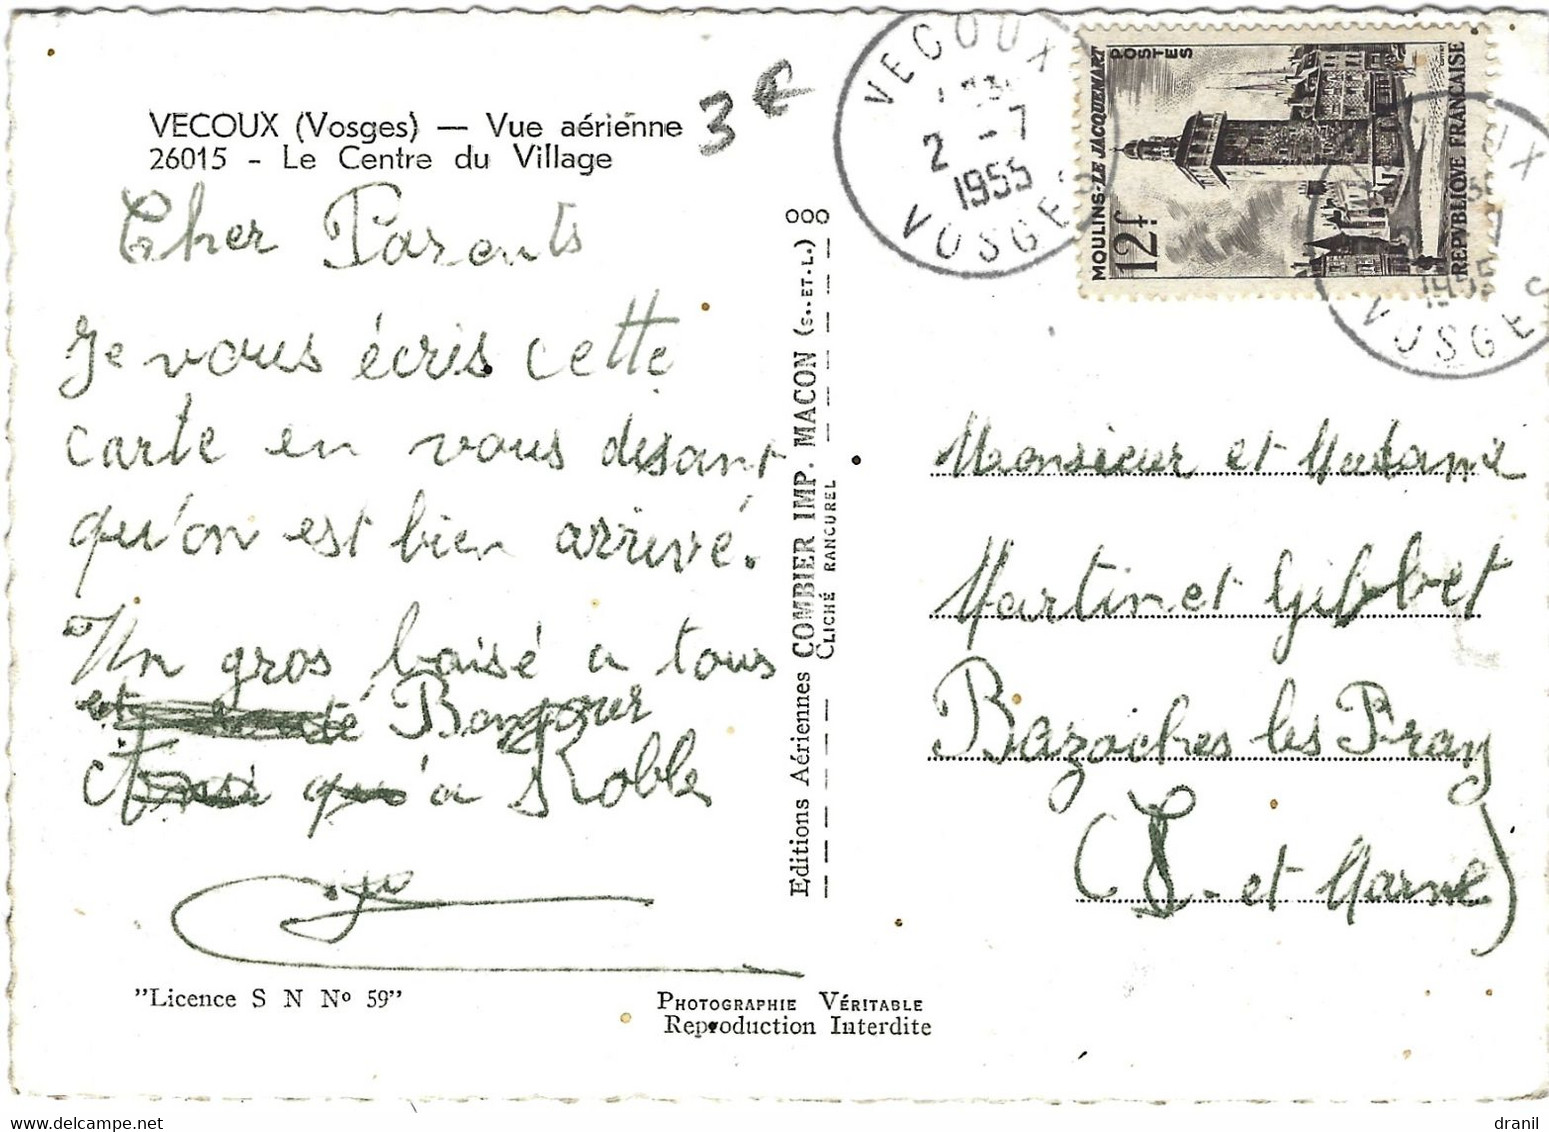 VECOUX (Vosges) — Vue aérienne
26015 - Le Centre du Village
3 €
Cher Parents
Je vous écris cette
carte en vous disant
qu'on est bien arrivé.
Un gros baisé a tous
et
qu'a
000
Editions Aériennes COMBIER IMP. MACON (S.-ET-L.)
CLICHÉ RANCUREL
VECOUX
2 - 7
1955
VOSGES
MOULINS-LE JACQUEMART
POSTES
12f
REPVBLIQVE FRANCAISE
1955
VOSGES
Monsieur et Madame
Martinet Gilbbet
Bazoches les Bray
(S-et Marne)
"Licence S N No 59"
PHOTOGRAPHIE VÉRITABLE
Reproduction Interdite
www.delcampe.net
dranil